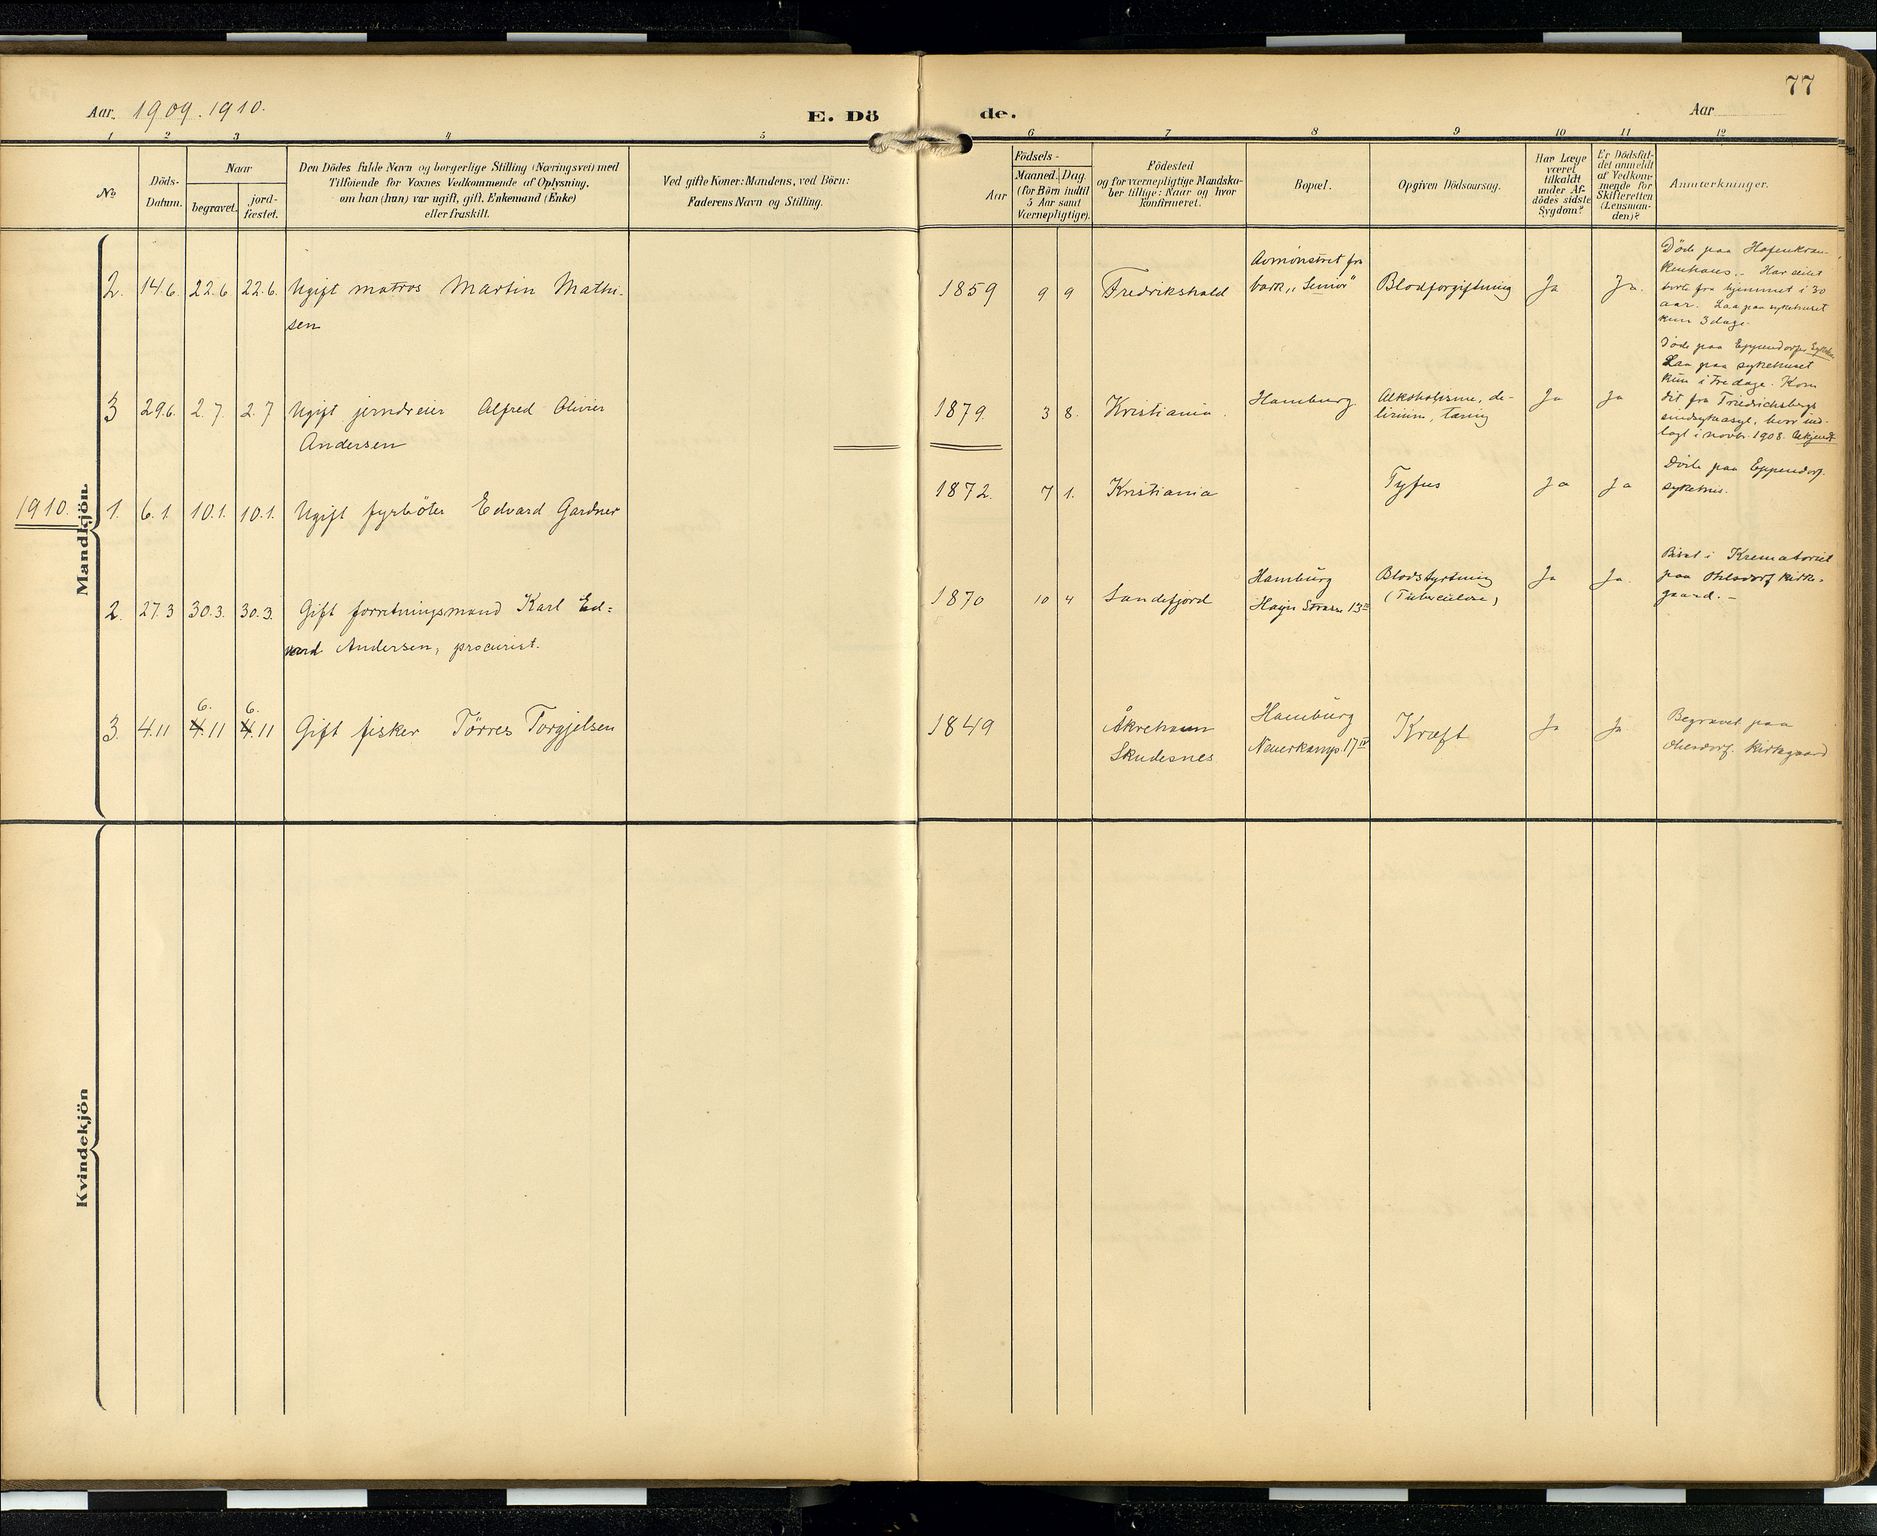 77
Aar. 1909. 1910.
E. Dö
de.
Aar
1 2 3 4 5 6 7 8 9 10 11 12
No
Döds-
Datum.
Naar
begravet.
jord-
fæstet.
Den Dödes fulde Navn og borgerlige Stilling (Næringsvei) med
Tilföiende for Voxnes Vedkommende af Oplysning,
om han (hun) var ugift, gift, Enkemand (Enke)
eller fraskilt.
Ved gifte Koner: Mandens, ved Börn:
Faderens Navn og Stilling.
Födsels-
Aar
Maaned. Dag.
(for Börn indtil
5 Aar samt
Værnepligtige).
Födested
og for værnepligtige Mandska-
ber tillige: Naar og hvor
konfirmeret.
Bopæl.
Opgiven Dödsaarsag.
Har Læge
været
tilkaldt
under Af-
dödes sidste
Sygdom?
Er Dödsfal-
det anmeldt
af Vedkom-
mende for
Skifteretten
(Lensman-
den)?
Anmærkninger.
Mandkjön.
2. 14.6. 22.6 22.6. Ugift matros Martin Mathi-
sen
1859 9 9 Fredrikshald
Avmønstret fra
bark
Blodforgiftning Ja Ja.
Døde paa Hafenkran-
kenhaus. -
borte fra hjemmet i 30
aar. Laa paa sykehuset
kun 3 dage.
3 29.6. 2.7. 2.7 Ugift jerndreier Alfred Olivier
Andersen
1879. 3 8. Kristiania. Hamburg.
Alkoholisme, de-
lirium, tæring
Ja Ja
Døde paa Eppendorfer
Laa paa sykehuset
kun i Fre dage. Kom
dit fra Friedrichsbergs
sindsykeasyl, hvor ind-
lagt i novbr. 1908.
1910.
1. 6.1. 10.1. 10.1. Ugift fyrbøter Edvard Gardner
1872. 7 1. Kristiania Tyfus Ja Ja
Døde paa Eppendorf.
sykehus.
2. 27.3 30.3. 30.3. Gift forretningsmand Karl Ed=
vard Andersen, procurist.
1870 10 4 Sandefjord
Hamburg
Hayn Strasse 13 II
Blodstyrtning
(Tuberculose)
Ja Ja.
Bisat i Krematoriet
paa Ohlsdorf kirke-
gaard. -
6. 6.
3. 4.11 4.11 4.11 Gift fisker Tørres Torgjelsen
1849
Åkrehamn
Skudesnes.
Hamburg
Neuerkamp. 17 IV
Kræft Ja Ja.
Begravet paa
Ohlsdorf. kirkegaard
Kvindekjön